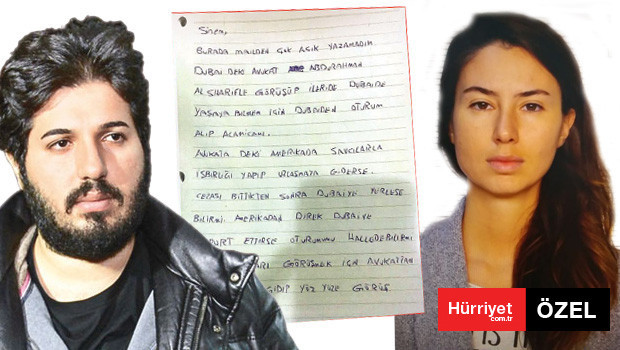 Sinem,
BURADA MAİLDEN ÇOK AÇIK YAZAMADIM
DUBAİ DEKİ AVUKAT ABDURAHMAN
ALSHARIFLE GÖRÜŞÜP İLERİDE DUBAİDE
YAŞAYA BİLMEM İÇİN DUBAİDEN OTURUM
ALIP ALAMICAMI.
AVUKATA DEKİ AMERİKADA SAVCILARLA
İŞBİRLİĞİ YAPIP UZLAŞMAYA GİDERSE.
CEZASI BİTTİKTEN SONRA DUBAİYE YERLEŞE
BİLİRMİ. AMERİKADAN DİREK DUBAİYE
ETTİRSE OTURUMUNU HALLEDEBİLİRMİ
GÖRÜŞMEK İÇİN AVUKATTAN
GİDİP YÜZ YÜZE GÖRÜŞ
Hürriyet
com.tr
ÖZEL
IS